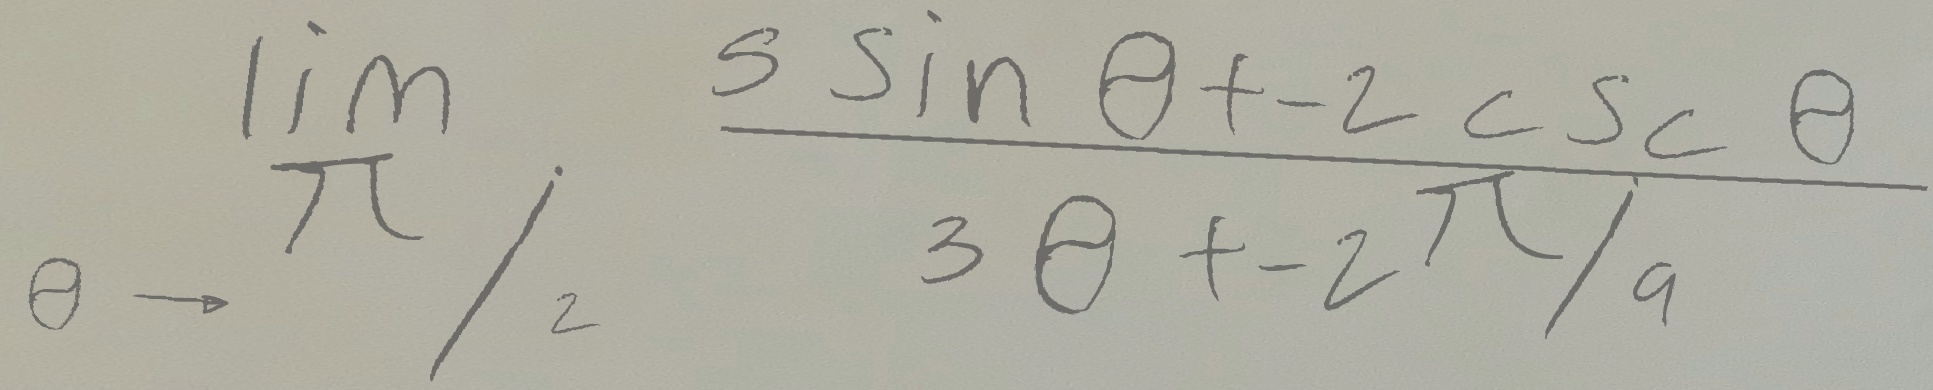 lim θ → π/2 (5 sin θ + -2 csc θ) / (3θ + -2 π/9)